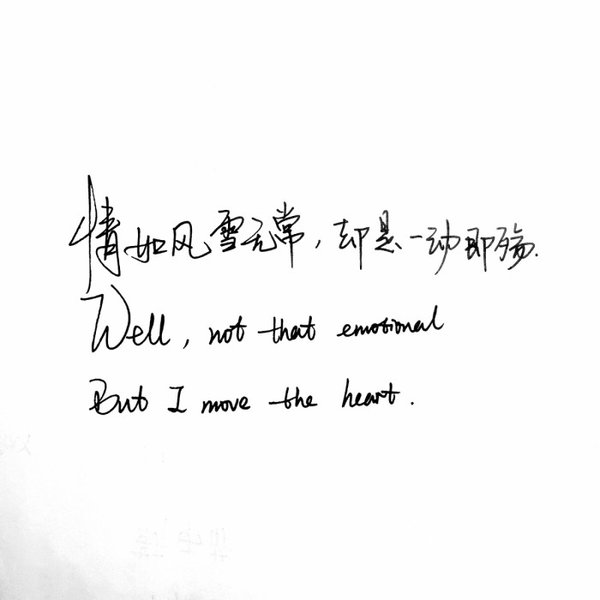 情如风雪无常，却是一动即殇.
Well, not that emotional
But I move the heart.